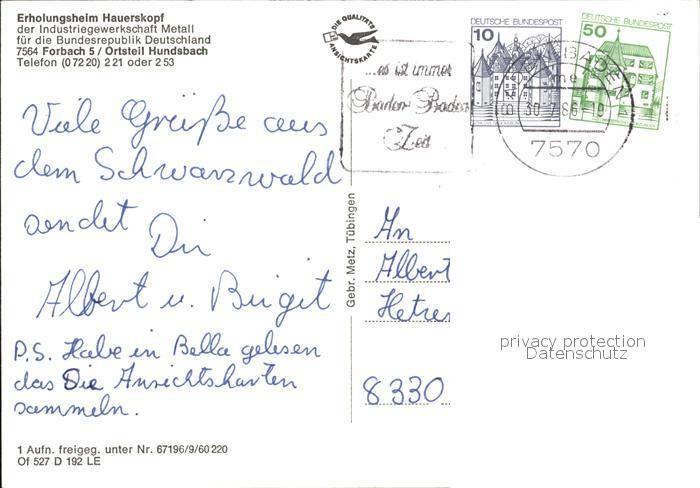 Erholungsheim Hauerskopf
der Industriegewerkschaft Metall
für die Bundesrepublik Deutschland
7564 Forbach 5 / Ortsteil Hundsbach
Telefon (0 72 20) 2 21 oder 2 53
DIE QUALITÄTS
ANSICHTSKARTE
DEUTSCHE BUNDESPOST
10
DEUTSCHE BUNDESPOST
50
...es ist immer
Baden-Baden
Zeit
30.7.86-19
7570
Viele Grüße aus
dem Schwarzwald
sendet Dir
Albert u. Birgit
P.S. Habe in Bella gelesen
das Sie Ansichtskarten
sammeln.
Gebr. Metz, Tübingen
An
Albert
8330
privacy protection
Datenschutz
1 Aufn. freigeg. unter Nr. 67196/9/60 220
Of 527 D 192 LE